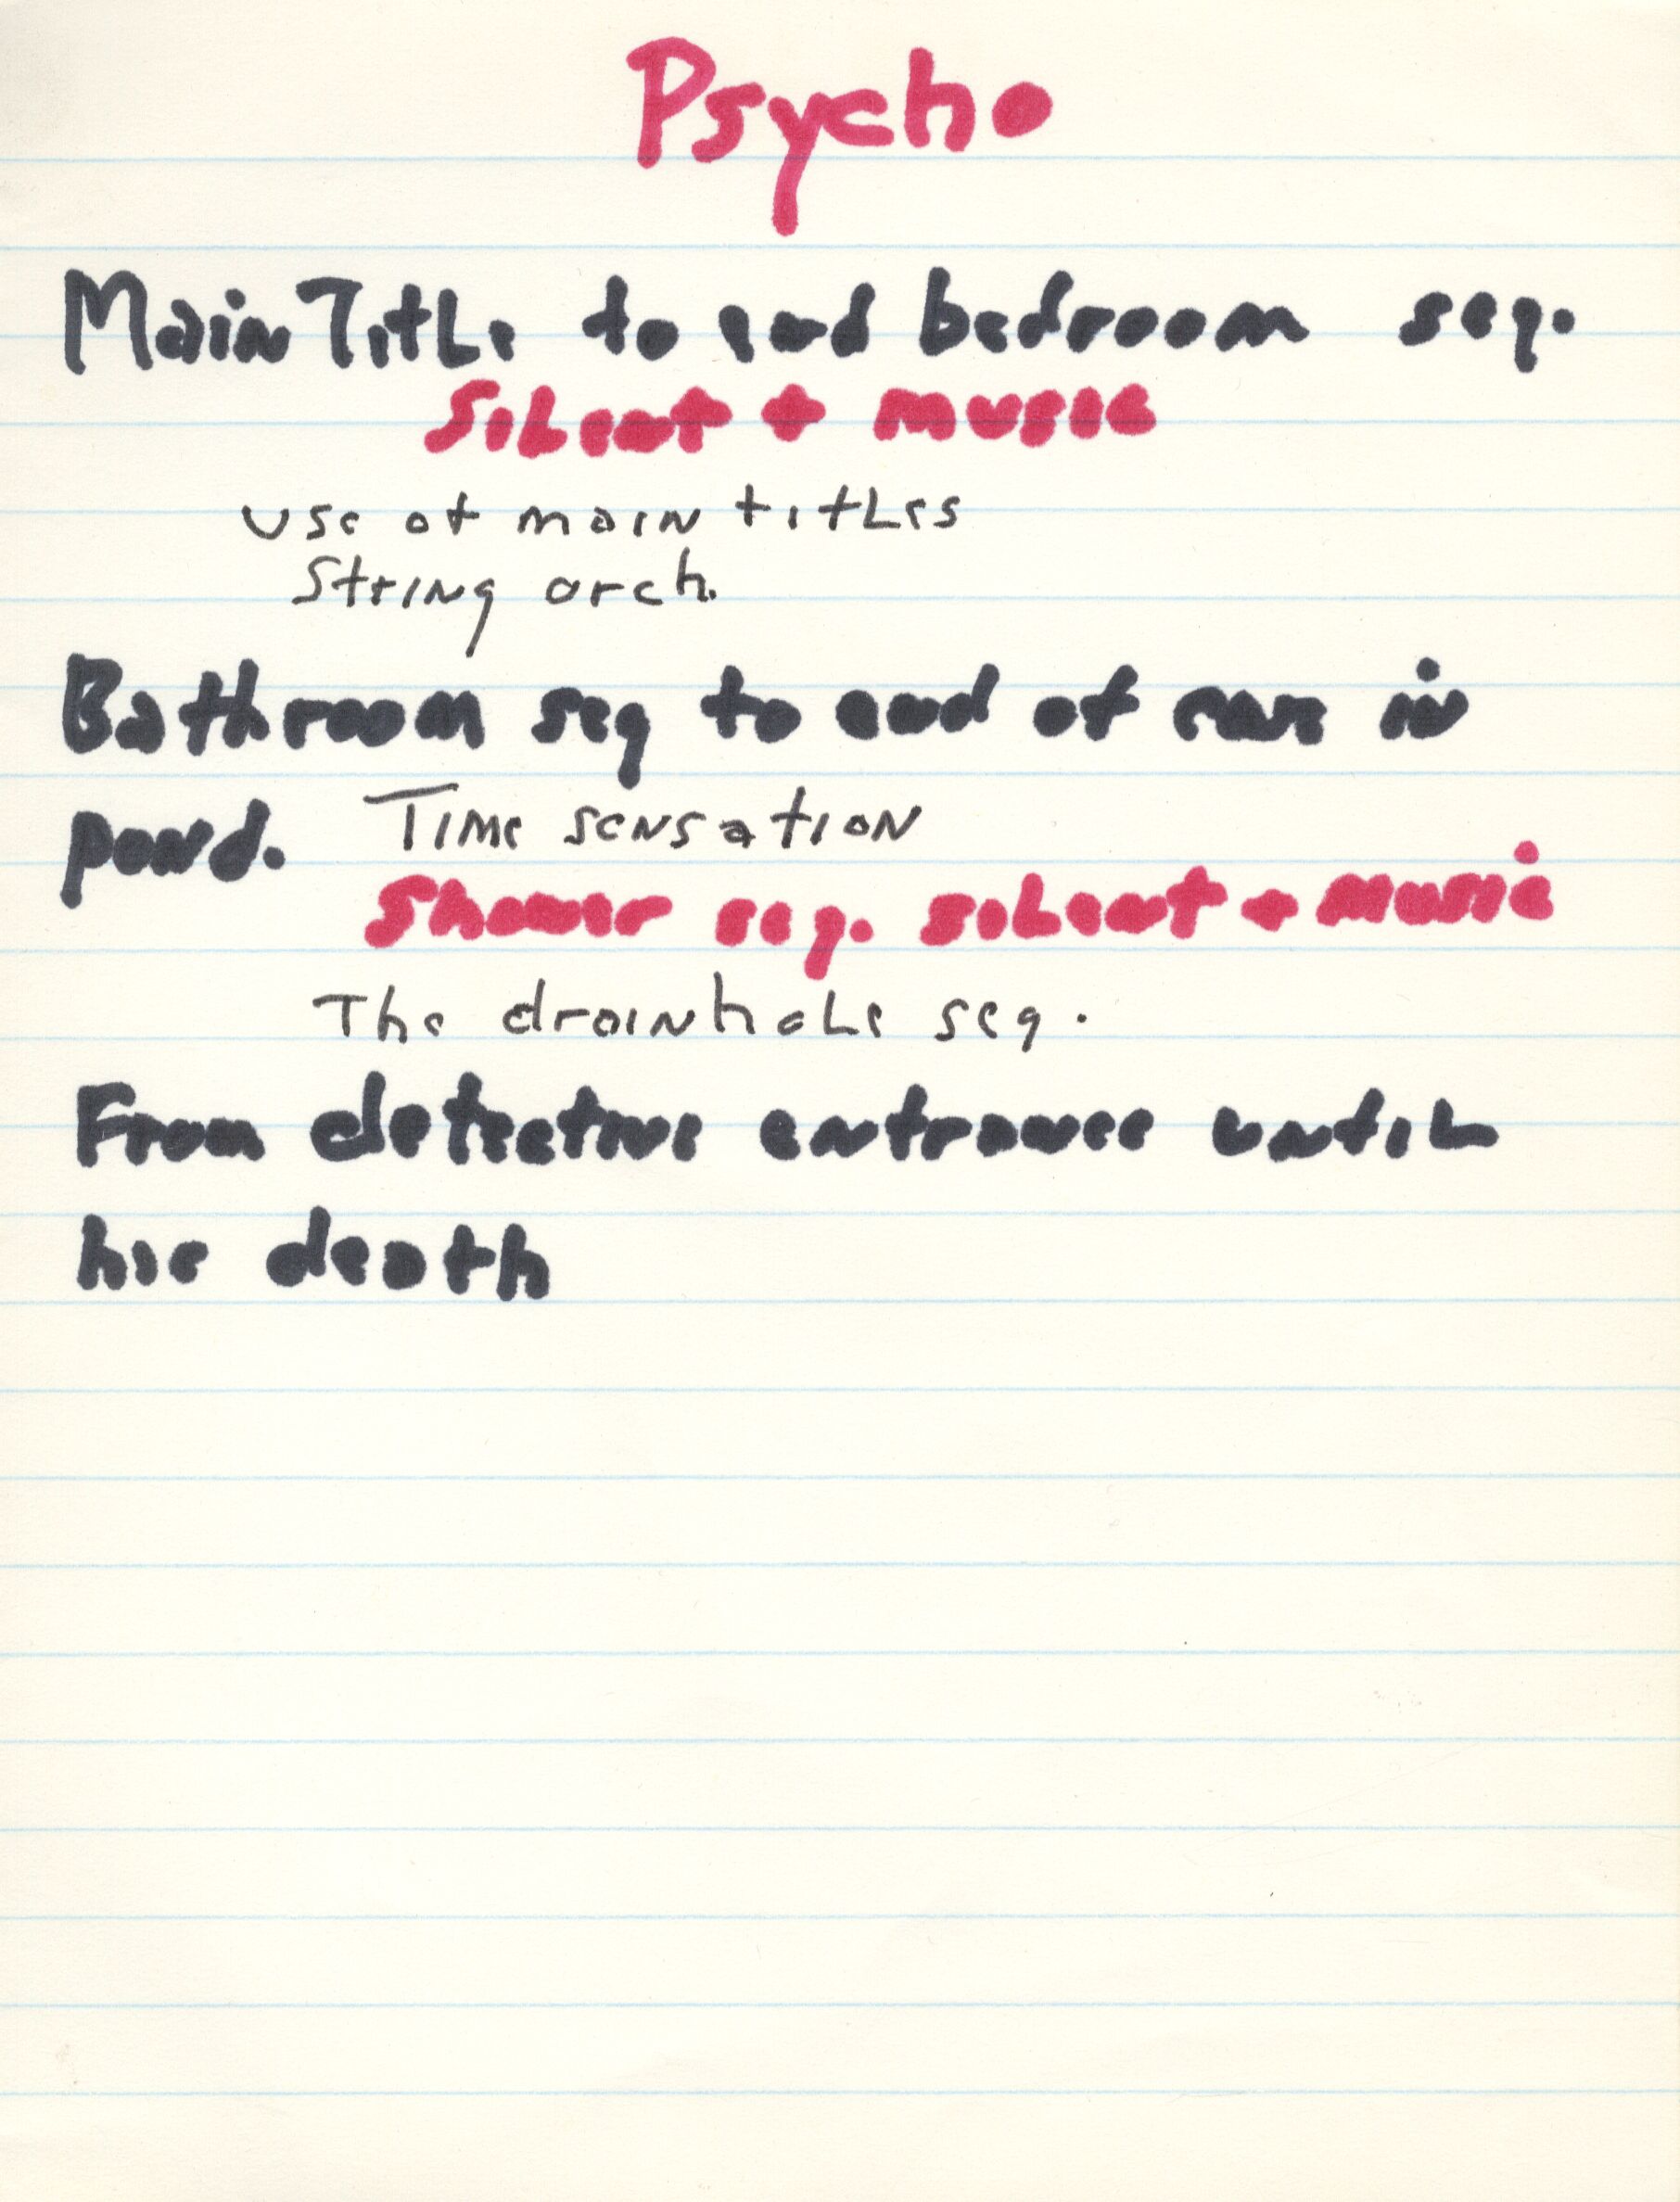 Psycho
Main Title to end bedroom seq.
Silent + music
Use of main titles
String orch.
Bathroom seq to end of car in
pond. Time sensation
Shower seq. silent + music
The drainhole seq.
From detective entrance until
his death